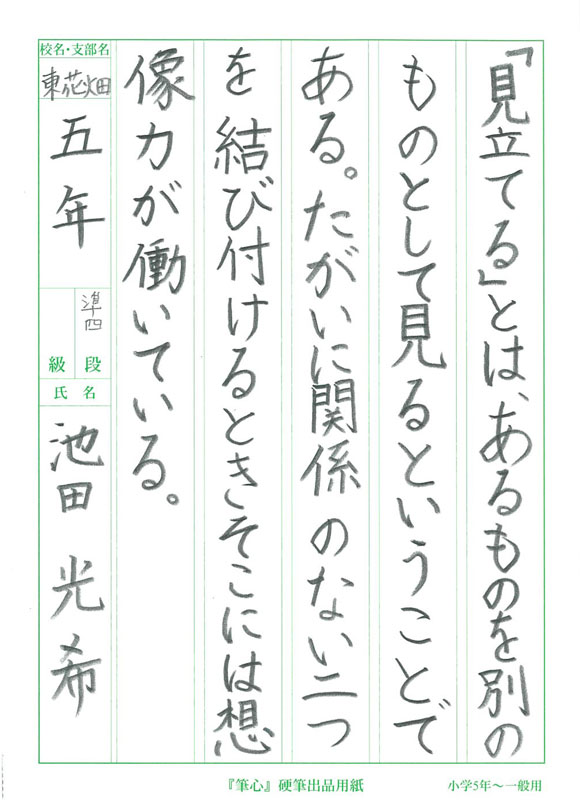 「見立てる」とは、あるものを別の
ものとして見るということで
ある。たがいに関係のない二つ
を結び付けるときそこには想
像力が働いている。
校名・支部名
東花畑
五年
準四
段
級
氏名
池田 光希
『筆心』硬筆出品用紙
小学5年〜一般用